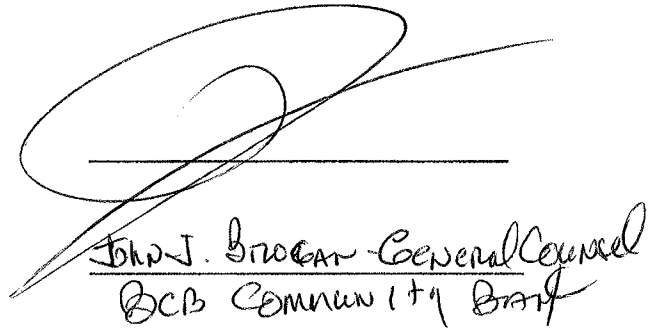 John J. Brogan - General Counsel
BCB Community Bank